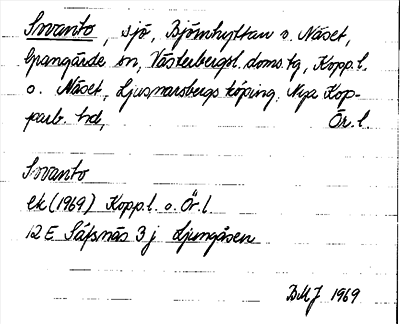 Sovanto, sjö, Björnhyttan o. Näset,
Grangärde sn, Västerbergsl. doms. tg, Kopp. l.
o. Näset, Ljusnarsbergs köping, Nya Kop-
parb. hd, Ör. l.
Sovanto
ek (1969) Kopp. l. o. Ör. l
12 E Säfsnäs 3 j Ljungåsen
BMJ 1969